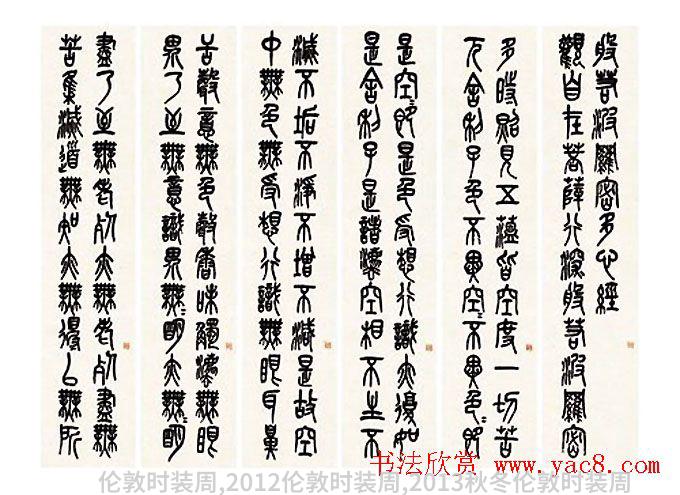 般若波羅密多心經
觀自在菩薩行深般若波羅密
多時照見五蘊皆空度一切苦
厄舍利子色不異空〻不異色即
是空〻即是色受想行識亦復如
是舍利子是諸法空相不生不
滅不垢不淨不增不減是故空
中無色無受想行識無眼耳鼻
舌聲意無色聲香味觸法無眼
界乃至無意識界無〻明亦無〻明
盡乃至無老死亦無老死盡無
苦集滅道無知亦無得以無所
书法欣赏 www.yac8.com
伦敦时装周,2012伦敦时装周,2013秋冬伦敦时装周